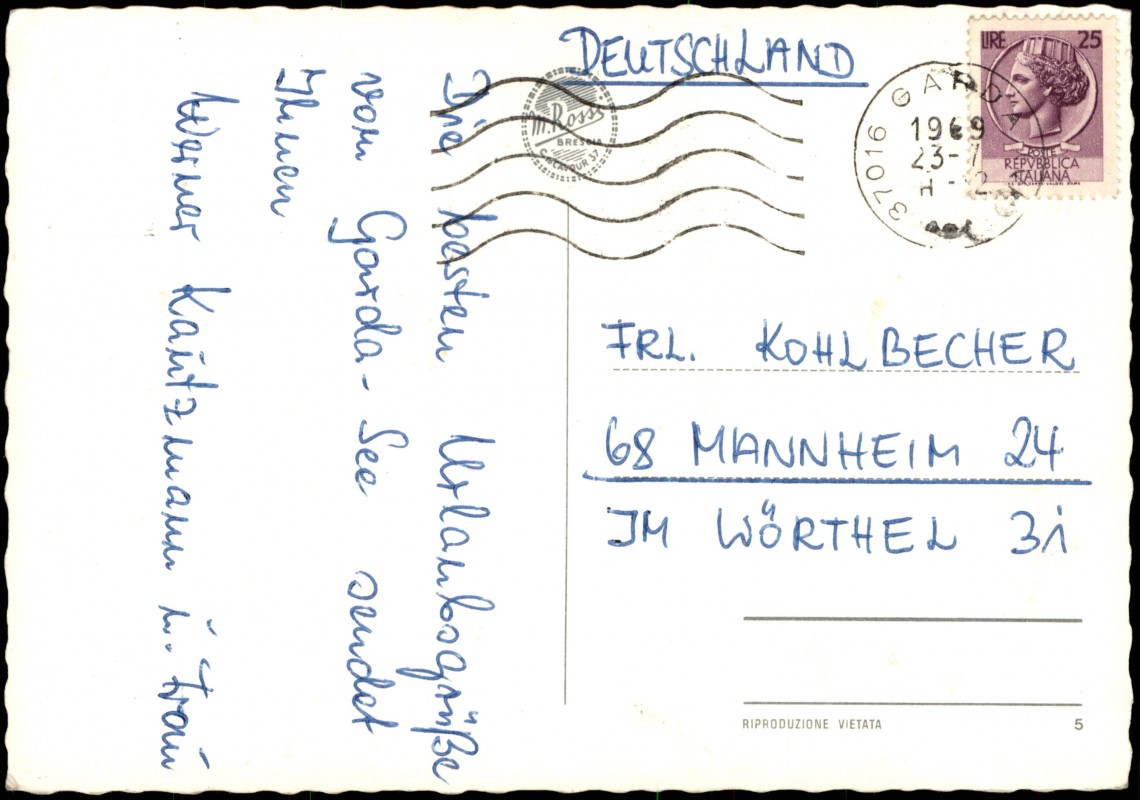 Die besten Urlaubsgrüße
vom Garda-See sendet
Ihnen
Werner Kautzmann u. Frau
DEUTSCHLAND
M. Rossi
BRESCIA
C. CAVOUR 37
37016 GARDA
1969
23-7
LIRE 25
POSTE
REPVBBLICA
ITALIANA
FRL. KOHLBECHER
68 MANNHEIM 24
IM WÖRTHEL 31
RIPRODUZIONE VIETATA 5